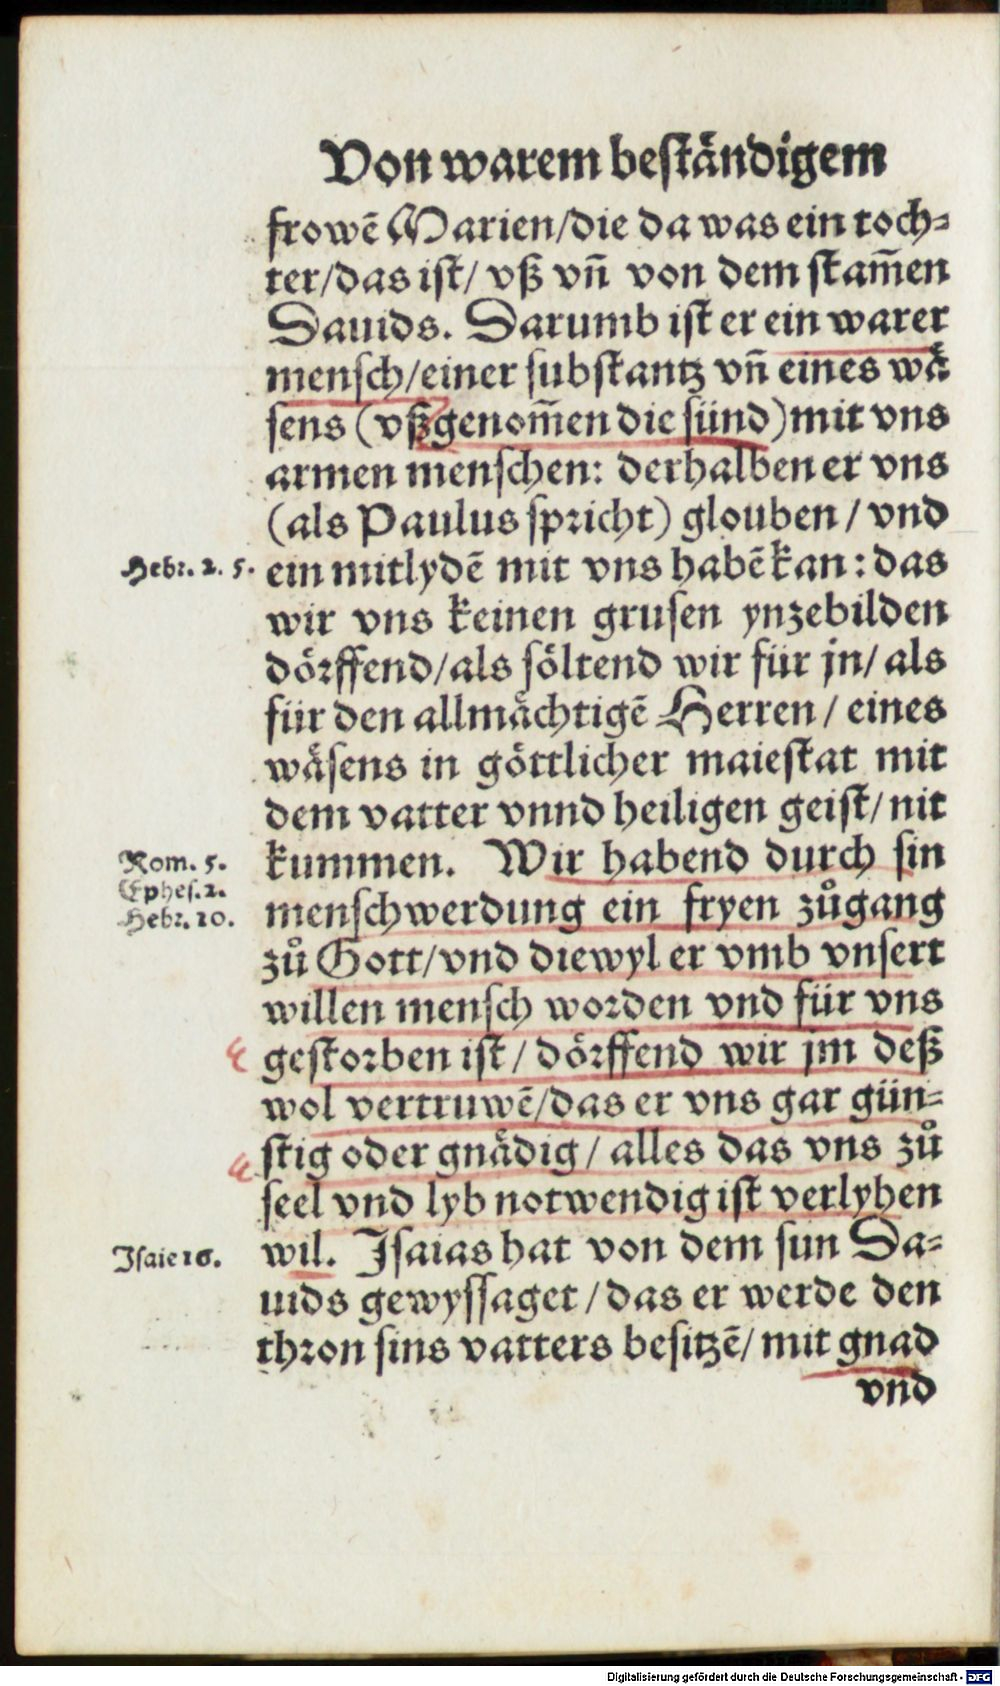 Von warem beständigem
frowẽ Marien/die da was ein toch⸗
ter/das ist/ vß vñ von dem stam̃en
Dauids. Darumb ist er ein warer
mensch/einer substantz vñ eines wä
sens (vßgenom̃en die sünd)mit vns
armen menschen: derhalben er vns
(als Paulus spricht) glouben / vnd
Hebr. 2. 5. ein mitlydẽ mit vns habẽ kan: das
wir vns keinen grusen ynzebilden
dörffend/als söltend wir für jn/ als
für den allmächtigẽ Herren / eines
wäsens in göttlicher maiestat mit
dem vatter vnnd heiligen geist/ nit
Rom. 5. kummen. Wir habend durch sin
Ephes. 2.
Hebr. 10. menschwerdung ein fryen zůgang
zů Gott/vnd diewyl er vmb vnsert
willen mensch worden vnd für vns
gestorben ist / dörffend wir jm deß
wol vertruwẽ/das er vns gar gün⸗
stig oder gnädig / alles das vns zů
seel vnd lyb notwendig ist verlyhen
Isaie 16. wil. Isaias hat von dem sun Da⸗
uids gewyssaget / das er werde den
thron sins vatters besitzẽ/ mit gnad
vnd
Digitalisierung gefördert durch die Deutsche Forschungsgemeinschaft - DFG